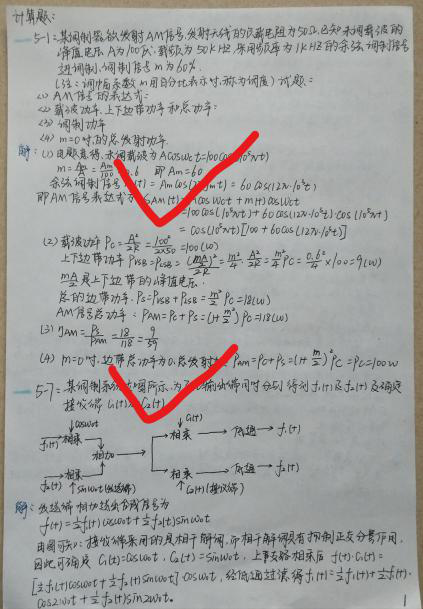 计算题:
5-1. 某调制器欲发射AM信号,发射天线的负载电阻为50Ω,已知未调载波的
峰值电压A为100伏,载频为50kHZ,采用频率为1kHZ的余弦调制信号
进调制,调制信号m为60%.
(注:调幅系数m用百分比表示时,称为调度)试题:
(1) AM信号的表达式:
(2) 载波功率,上下边带功率和总功率:
(3) 调制功率
(4) m=0时,的总发射功率.
解: (1) 由题意得,未调载波为Acosωct=100cos(10⁵πt)
m = Am/100 0.6 即Am=60
余弦调制信号 (t) = Am cos(2π fmt) = 60cos(12π·10³t)
即AM信号表达式 SAM(t) = cosωct + m(t)cosωct
=100cos(10⁵πt) + 60cos(12π·10³t)·cos(10⁵πt)
= cos(10⁵πt)[100+60cos(12π·10³t)]
(2) 载波功率 PC = A²/2R = 100²/2×50 = 100(W)
上下边带功率 PVSB = PUSB = (mA/2)²/2R = m²/4·A²/2R = m²/4 PC = 0.6²/4 ×100 = 9(W)
mA/2 是上下边带的峰值电压.
总的边带功率: PS = PVSB + PUSB = m²/2 PC = 18(W)
AM信号总功率: PAM = PC+PS = (1+m²/2)PC = 118(W)
(3) ηAM = PS/PAM = 18/118 = 9/59
(4) m=0时,边带总功率为0,总发射功 PAM=PC+PS=(1+m²/2)PC=PC=100W
5-7. 某调制系统 图所示,为了 输出端同时分别得到f₁(t)及f₂(t)及确定
接收端 C₁(t) C₂(t)
cosω₀t
C₁(t)
f₁(t) 相乘
相加
相乘 低通 f₁(t)
f₂(t) 相乘
相乘 低通 f₂(t)
sinω₀t (发送端)
C₂(t) (接收端)
解: 发送端相加输出合成信号为
f(t)=½f₁(t)cosω₀t+½f₂(t)sinω₀t
由图可知: 接收端采用的是相干解调,即相干解调具有抑制正交分量作用,
因此可确定 C₁(t)=cosω₀t, C₂(t)=sinω₀t, 上事支路相乘后 f(t)·C₁(t)=
[½f₁(t)cosω₀t+½f₂(t)sinω₀t]·cosω₀t, 经低通过滤得f₁(t)=½f₁(t)+½f₁(t)·
cos2ω₀t+½f₂(t)sin2ω₀t.
1